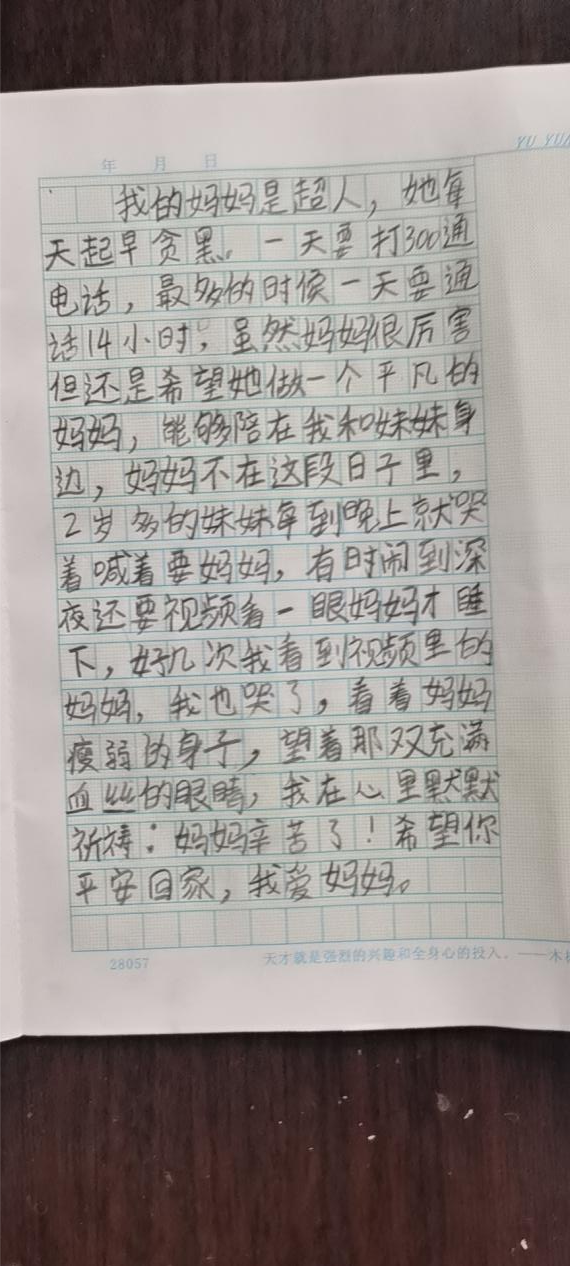 YU YUA
年 月 日
我的妈妈是超人，她每
天起早贪黑。一天要打300通
电话，最多的时候一天要通
话14小时，虽然妈妈很厉害
但还是希望她做一个平凡的
妈妈，能够陪在我和妹妹身
边，妈妈不在这段日子里，
2岁多的妹妹每到晚上就哭
着喊着要妈妈，有时闹到深
夜还要视频看一眼妈妈才睡
下，好几次我看到视频里的
妈妈，我也哭了，看着妈妈
瘦弱的身子，望着那双充满
血丝的眼睛，我在心里默默
祈祷：妈妈辛苦了！希望你
平安回家，我爱妈妈。
28057 天才就是强烈的兴趣和全身心的投入。——木村